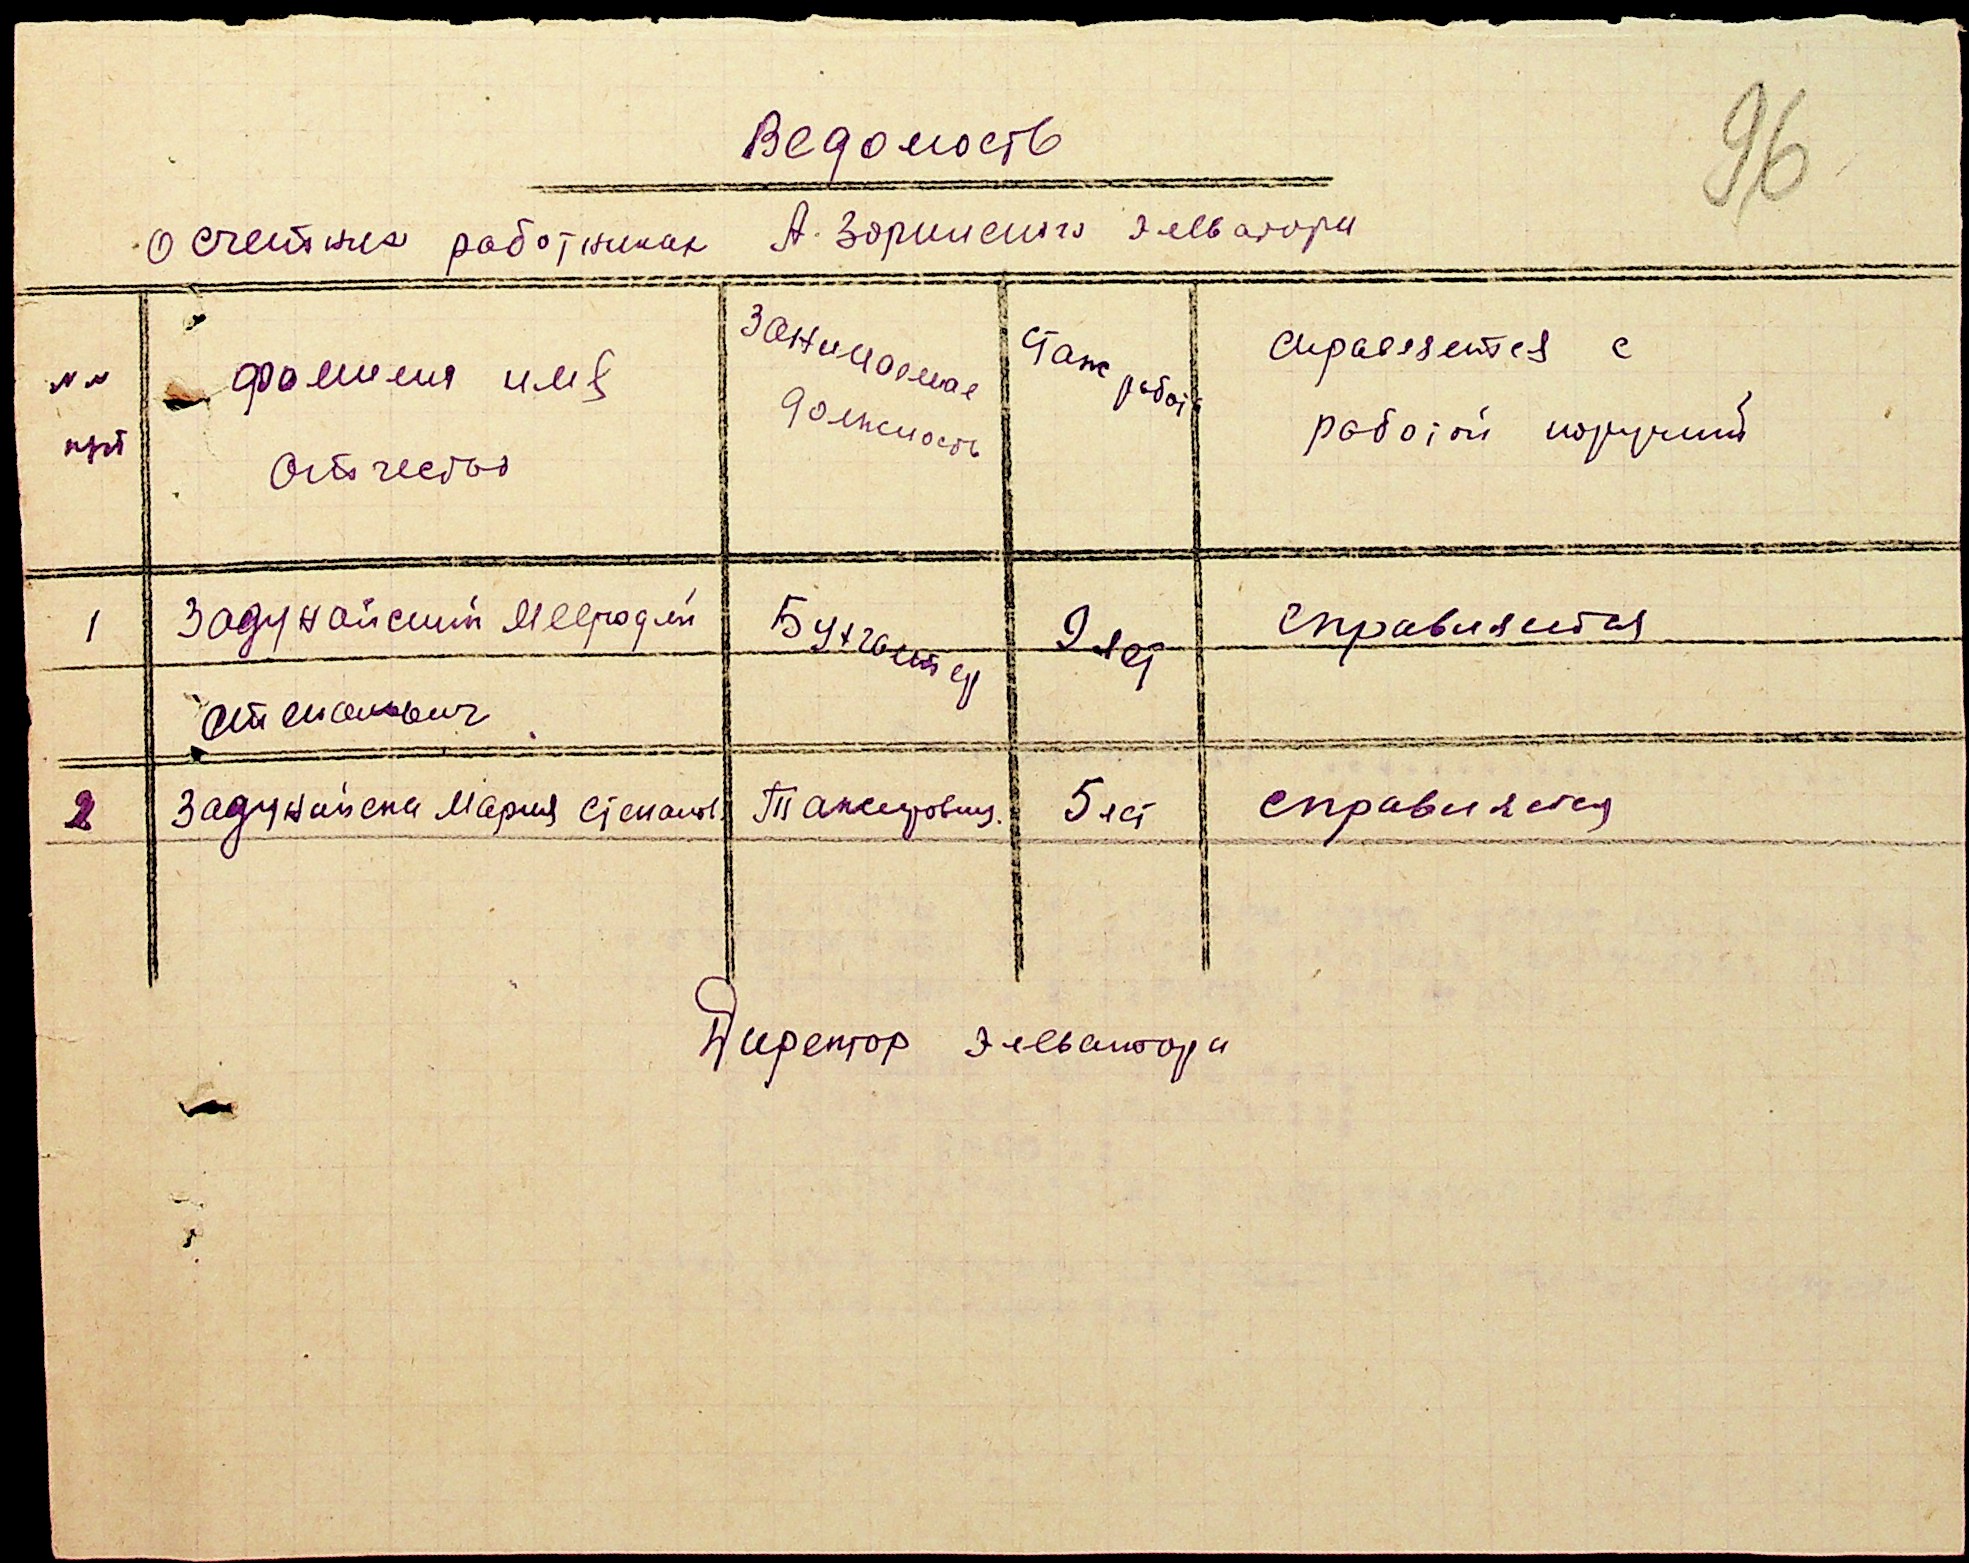 96
Ведомость
о счетных работниках А. Зоринского элеватора
№№ п/п
фамилия имя отчество
Занимаемая должность
Стаж работы
справляется с работой порученной
1 Задунайский Мефодий Степанович Бухгалтер 9 лет справляется
2 Задунайска Мария Степанов. Таксировщ. 5 лет справляется
Директор элеватора